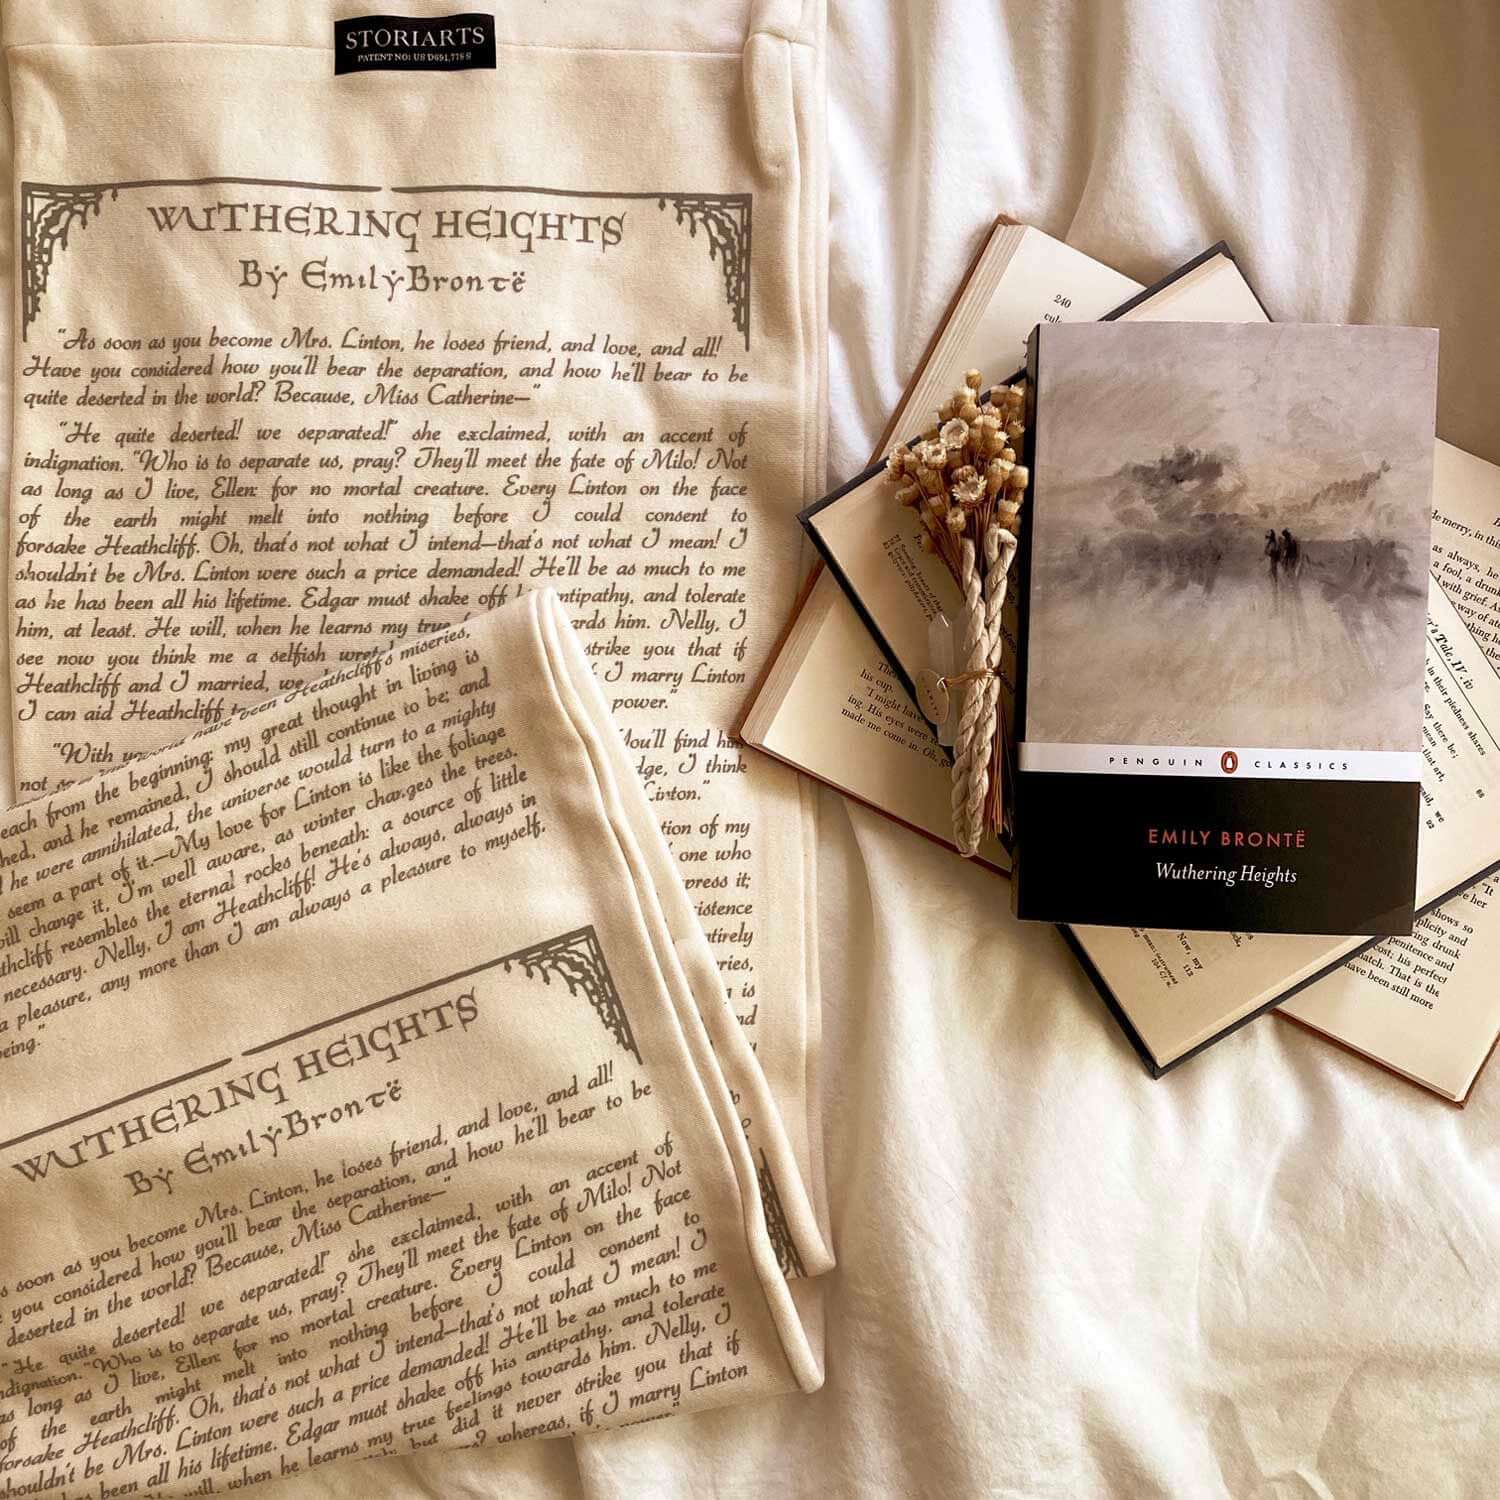 STORIARTS
PATENT NO: US D691,778 S
WUTHERING HEIGHTS
By Emily Brontë
"As soon as you become Mrs. Linton, he loses friend, and love, and all!
Have you considered how you'll bear the separation, and how he'll bear to be
quite deserted in the world? Because, Miss Catherine—"
"He quite deserted! we separated!" she exclaimed, with an accent of
indignation. "Who is to separate us, pray? They'll meet the fate of Milo! Not
as long as I live, Ellen: for no mortal creature. Every Linton on the face
of the earth might melt into nothing before I could consent to
forsake Heathcliff. Oh, that's not what I intend—that's not what I mean! I
shouldn't be Mrs. Linton were such a price demanded! He'll be as much to me
as he has been all his lifetime. Edgar must shake off antipathy, and tolerate
him, at least. He will, when he learns my true him. Nelly, I
see now you think me a selfish strike you that if
Heathcliff and I married, I marry Linton
I can aid Heathcliff power."
"With You'll find
not I think
Linton."
of my
one who
is
Heathcliff's miseries,
each from the beginning: my great thought in living is
and he remained, I should still continue to be; and
he were annihilated, the universe would turn to a mighty
seem a part of it.—My love for Linton is like the foliage
will change it, I'm well aware, as winter changes the trees.
resembles the eternal rocks beneath: a source of little
necessary. Nelly, I am Heathcliff! He's always, always in
a pleasure, any more than I am always a pleasure to myself,
being."
WUTHERING HEIGHTS
By Emily Brontë
soon as you become Mrs. Linton, he loses friend, and love, and all!
you considered how you'll bear the separation, and how he'll bear to be
deserted in the world? Because, Miss Catherine—"
"He quite deserted! we separated!" she exclaimed, with an accent of
indignation. "Who is to separate us, pray? They'll meet the fate of Milo! Not
as long as I live, Ellen: for no mortal creature. Every Linton on the face
of the earth might melt into nothing before I could consent to
forsake Heathcliff. Oh, that's not what I intend—that's not what I mean! I
shouldn't be Mrs. Linton were such a price demanded! He'll be as much to me
been all his lifetime. Edgar must shake off his antipathy, and tolerate
will, when he learns my true feelings towards him. Nelly, I
but did it never strike you that if
whereas, if I marry Linton
power."
240
There
his cup.
"I might have
ing. His eyes were
made me come in. Oh,
PENGUIN CLASSICS
EMILY BRONTË
Wuthering Heights
merry, in this
as always, he
a fool, a drunk
with grief. As
way of
Tale, IV. iv
in their piedness shares
Say there be;
mean
that art,
we
68
92
Now, my
112
shows so
and
drunk
cost; his perfect
penitence and
That is the
have been still more